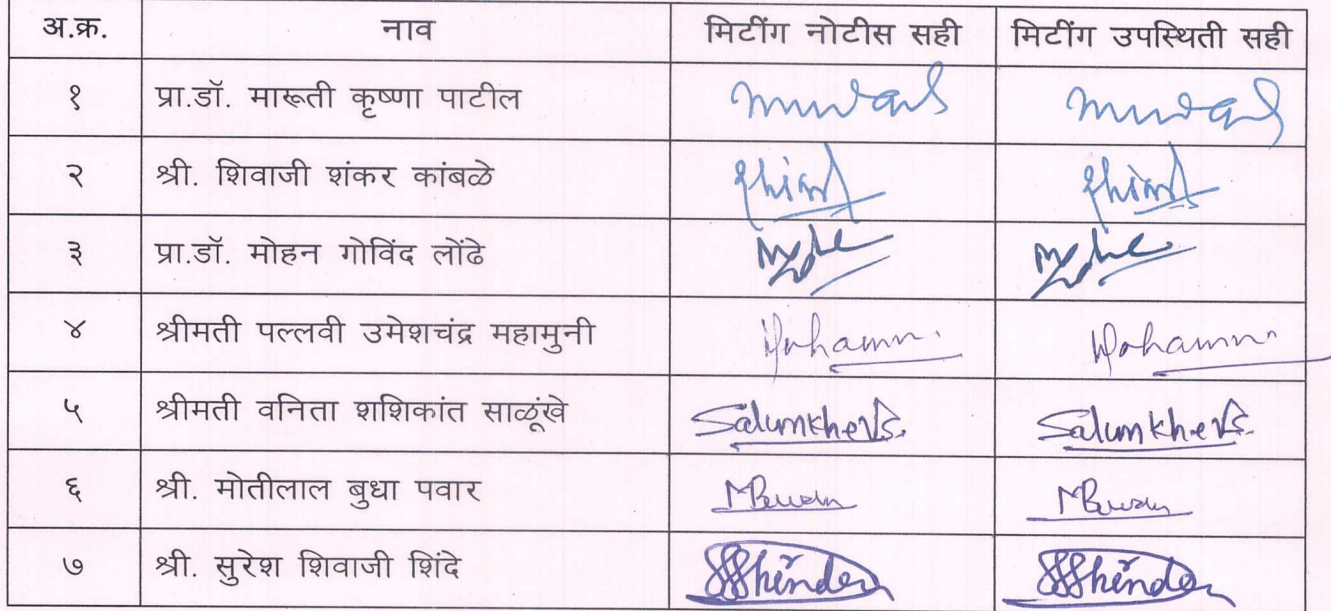 अ.क्र. नाव मिटींग नोटीस सही मिटींग उपस्थिती सही
१ प्रा.डॉ. मारूती कृष्णा पाटील
२ श्री. शिवाजी शंकर कांबळे
३ प्रा.डॉ. मोहन गोविंद लोंढे
४ श्रीमती पल्लवी उमेशचंद्र महामुनी
५ श्रीमती वनिता शशिकांत साळूंखे SalunkheVS. SalunkheVS.
६ श्री. मोतीलाल बुधा पवार
७ श्री. सुरेश शिवाजी शिंदे SSShinde SSShinde